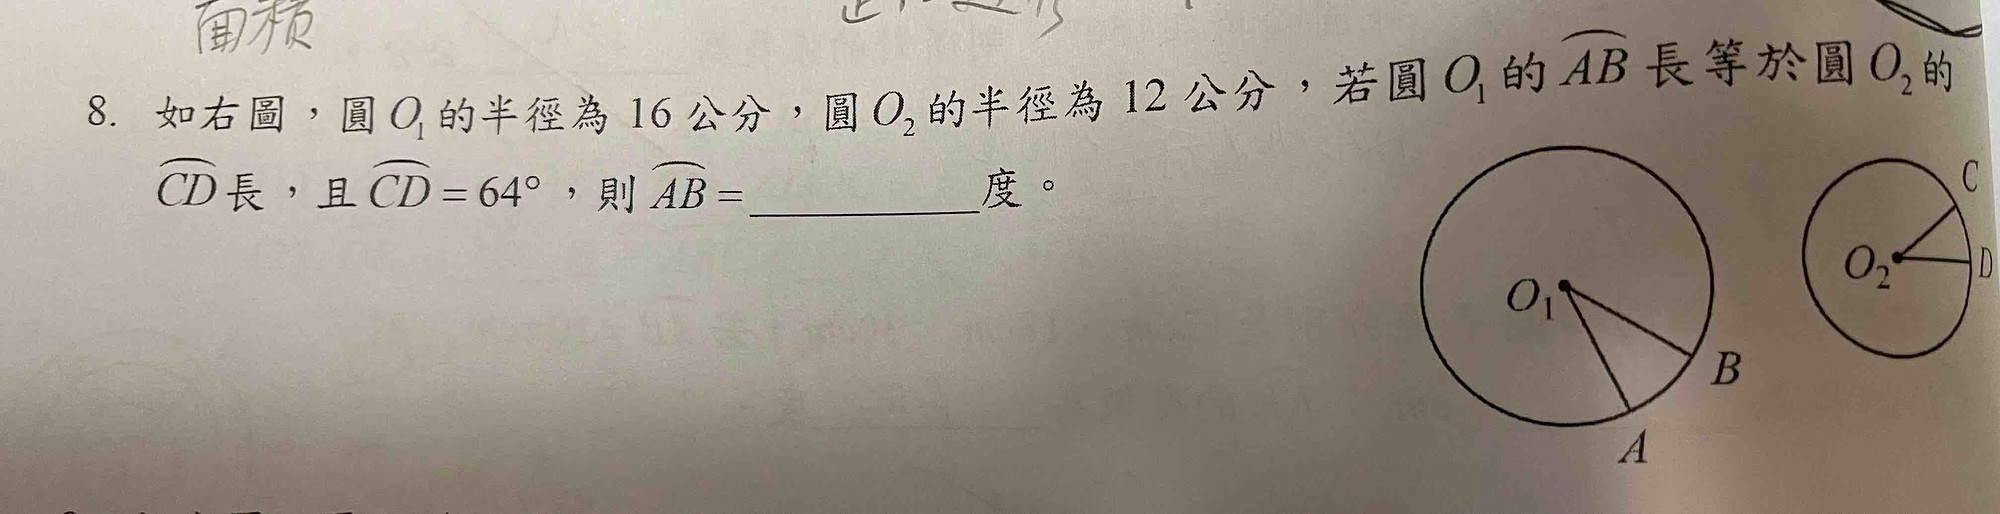 面積
8. 如右圖，圓 O₁ 的半徑為 16 公分，圓 O₂ 的半徑為 12 公分，若圓 O₁ 的 A͡B 長等於圓 O₂ 的
C͡D 長，且 C͡D = 64°，則 A͡B = ________ 度。
C
O₂
D
O₁
B
A